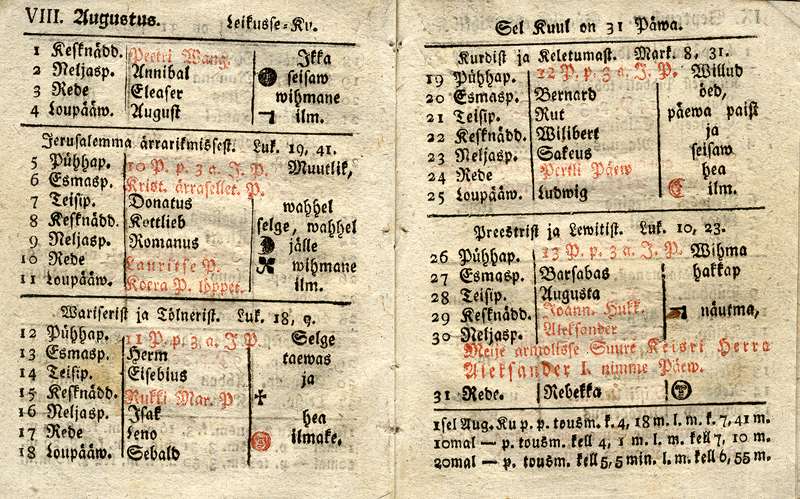 VIII. Augustus. Leikusse-Ku.
1 Kesknädd. Peetri Wang. Ikka
2 Neljasp. Annibal seisaw
3 Rede Eleaser wihmane
4 Loupääw. August ilm.
Jerusalemma ärrarikmissest. Luk. 19, 41.
5 Pühhap. 10 P. p. 3 a. J. P. Muutlik,
6 Esmasp. Krist. ärrasellet. P.
7 Teisip. Donatus wahhel
8 Kesknädd. Kottlieb selge, wahhel
9 Neljasp. Romanus jälle
10 Rede Lauritse P. wihmane
11 Loupääw. Koera P. löppet. ilm.
Wariserist ja Tölnerist. Luk. 18, 9.
12 Pühhap. 11 P. p. 3 a. J. P. Selge
13 Esmasp. Herm taewas
14 Teisip. Eisebius ja
15 Kesknädd. Rukki Mar. P
16 Neljasp. Isak hea
17 Rede Leno ilmake.
18 Loupääw. Sebald
Sel Kuul on 31 Päwa.
Kurdist ja Keletumast. Mark. 8, 31.
19 Pühhap. 12 P. p. 3 a. J. P. Willud
20 Esmasp. Bernard öed,
21 Teisip. Rut päewa paist
22 Kesknädd. Wilibert ja
23 Neljasp. Sakeus seisaw
24 Rede Pertli Päew hea
25 Loupääw. Ludwig ilm.
Preestrist ja Lewitist. Luk. 10, 23.
26 Pühhap. 13 P. p. 3 a. J. P. Wihma
27 Esmasp. Barsabas hakkap
28 Teisip. Augusta
29 Kesknädd. Joann. Hukk. näutma,
30 Neljasp. Aleksander
Meije armolisse Suure Keisri Herra
Aleksander I. nimme Päew.
31 Rede. Rebekka
1sel Aug. Ku p. p. tousm. k. 4, 18 m. l. m. k. 7, 41 m.
10mal — p. tousm. kell 4, 1 m. l. m. kell 7, 10 m.
20mal — p. tousm. kell 5, 5 min. l. m. kell 6, 55 m.